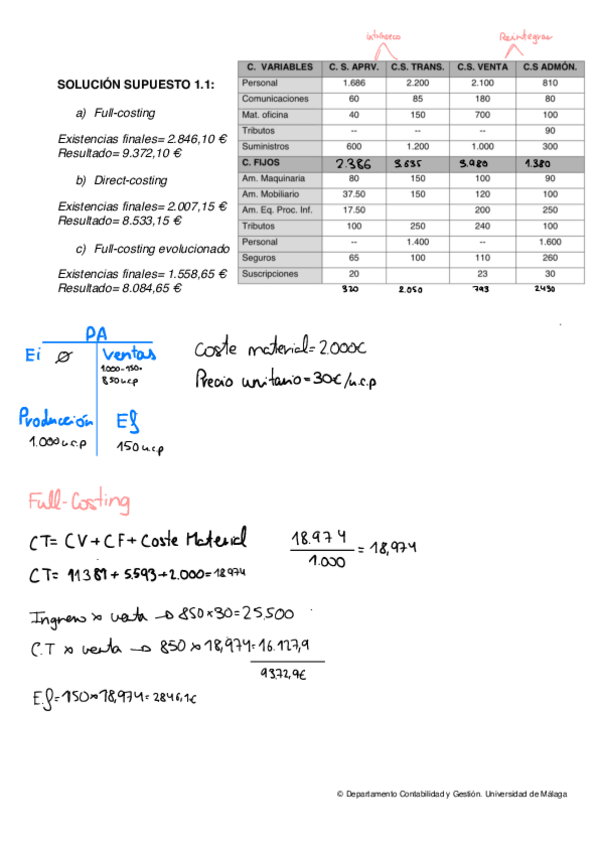 Reintegran
SOLUCIÓN SUPUESTO 1.1:
a) Full-costing
Existencias finales= 2.846,10 €
Resultado= 9.372,10 €
b) Direct-costing
Existencias finales= 2.007,15 €
Resultado= 8.533,15 €
c) Full-costing evolucionado
Existencias finales= 1.558,65 €
Resultado= 8.084,65 €
C. VARIABLES C. S. APRV. C.S. TRANS. C.S. VENTA C.S ADMÓN.
Personal 1.686 2.200 2.100 810
Comunicaciones 60 85 180 80
Mat. oficina 40 150 700 100
Tributos -- -- 90
Suministros 600 1.200 1.000 300
C. FIJOS 2.386 3.635 3.980 1.380
Am. Maquinaria 80 150 100 90
Am. Mobiliario 37.50 150 120 100
Am. Eq. Proc. Inf. 17.50 200 250
Tributos 100 250 240 100
Personal -- 1.400 -- 1.600
Seguros 65 100 110 260
Suscripciones 20 23 30
320 2.050 793 2430
PA
Ei ∅ Ventas
1.000-150=
850 u.c.p
Producción Ef
1.000 u.c.p 150 u.c.p
Coste material = 2.000€
Precio unitario = 30€/u.c.p
Full-Costing
CT= CV + CF + Coste Material
CT= 11381 + 5.593 + 2.000 = 18974
18.974
1.000
= 18,974
Ingreso x venta → 850x30 = 25.500
C.T x venta → 850 x 18,974 = 16.127,9
9372,9€
E.f = 150 x 18,974 = 2846,1€
© Departamento Contabilidad y Gestión. Universidad de Málaga